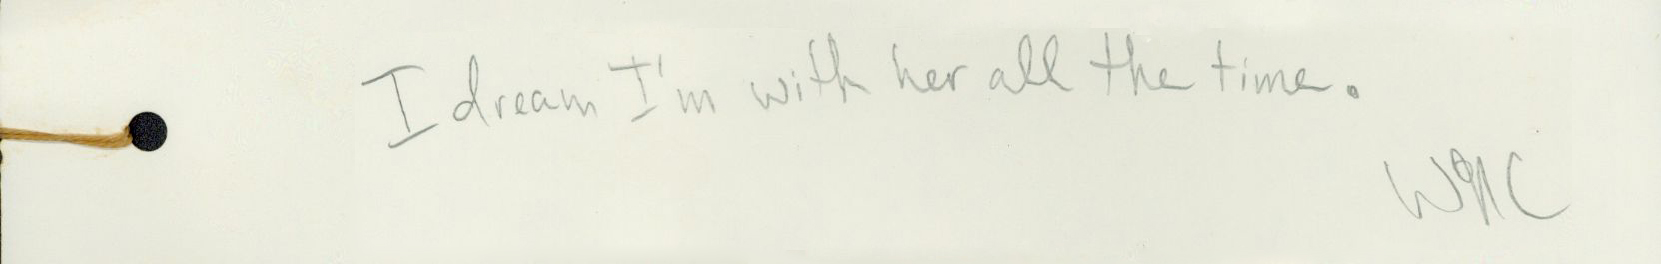 I dream I'm with her all the time.